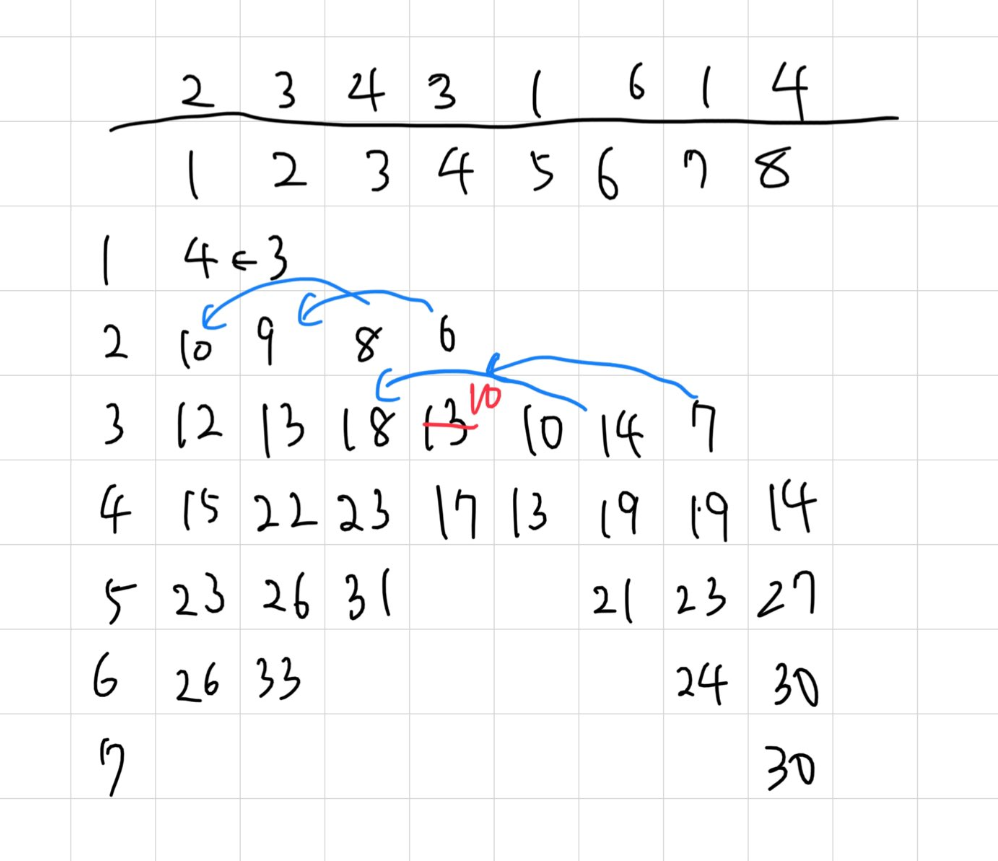 2 3 4 3 1 6 1 4
1 2 3 4 5 6 7 8
1 4 ← 3
2 10 9 8 6
10
3 12 13 18 13 10 14 7
4 15 22 23 17 13 19 19 14
5 23 26 31 21 23 27
6 26 33 24 30
7 30